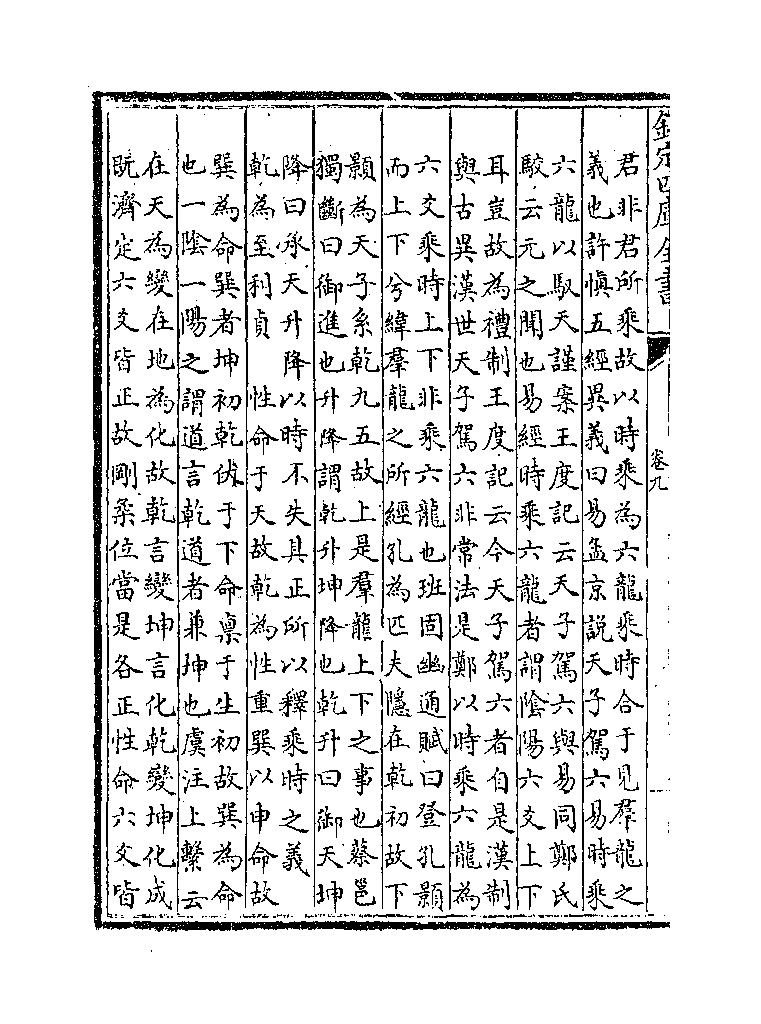 欽定四庫全書
卷九
君非君所乘故以時乘為六龍乘時合于見羣龍之
義也許愼五經異義曰易孟京說天子駕六易時乘
六龍以馭天謹案王度記云天子駕六與易同鄭氏
駮云元之聞也易經時乘六龍者謂陰陽六爻上下
耳豈故為禮制王度記云今天子駕六者自是漢制
與古異漢世天子駕六非常法是鄭以時乘六龍為
六爻乘時上下非乘六龍也班固幽通賦曰登孔顥
而上下兮緯羣龍之所經孔為匹夫隱在乾初故下
顥為天子系乾九五故上是羣龍上下之事也蔡邕
獨斷曰御進也升降謂乾升坤降也乾升曰御天坤
降曰承天升降以時不失其正所以釋乘時之義
乾為至利貞　性命于天故乾為性重巽以申命故
巽為命巽者坤初乾伏于下命禀于生初故巽為命
也一陰一陽之謂道言乾道者兼坤也虞注上繫云
在天為變在地為化故乾言變坤言化乾變坤化成
旣濟定六爻皆正故剛柔位當是各正性命六爻皆